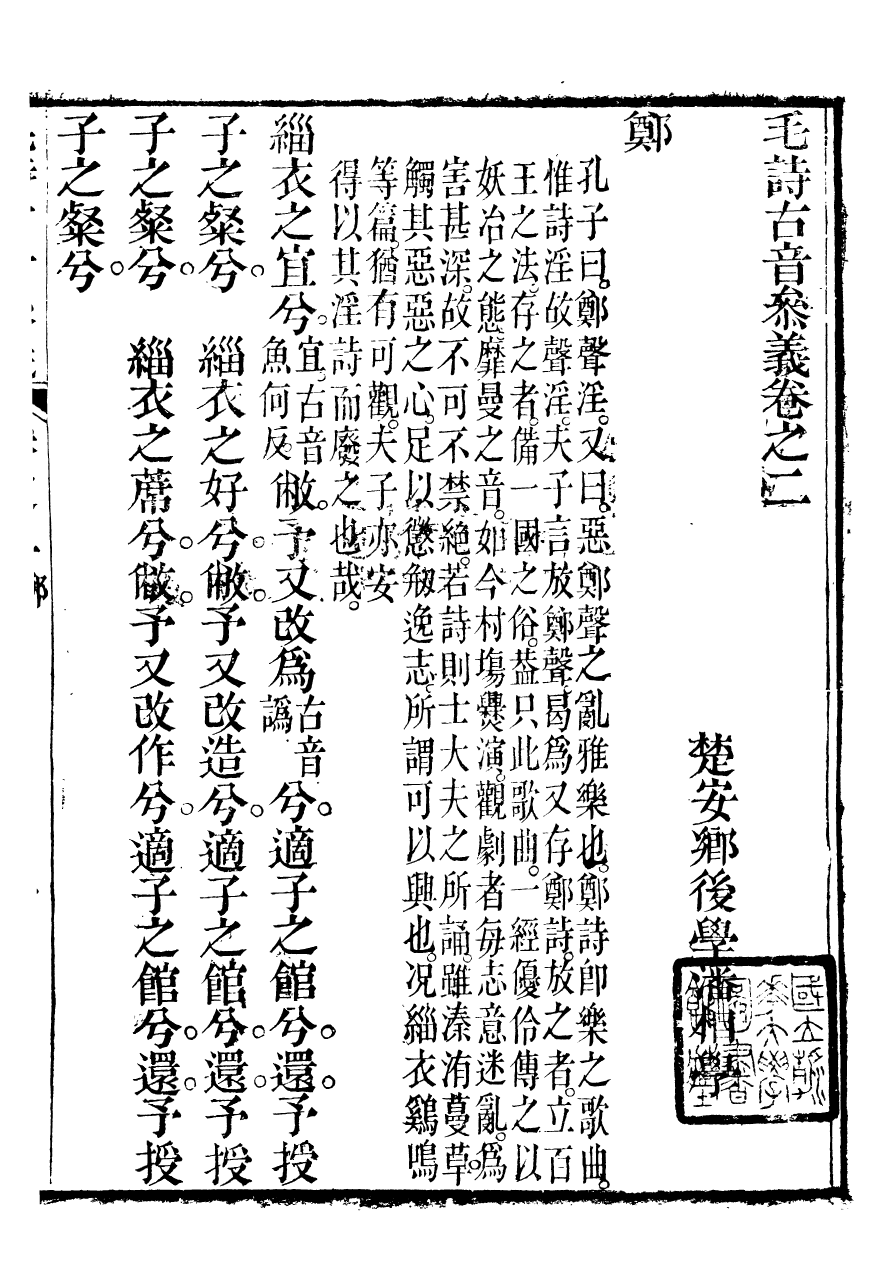 毛詩古音叅義卷之二
楚安鄉後學潘相學
鄭
孔子曰。鄭聲淫。又曰。惡鄭聲之亂雅樂也。鄭詩卽樂之歌曲。
惟詩淫故聲淫。夫子言放鄭聲。曷爲又存鄭詩。放之者。立百
王之法。存之者。備一國之俗。葢只此歌曲。一經優伶傳之以
妖冶之態。靡曼之音。如今村塲爨演。觀劇者每志意迷亂。爲
害甚深。故不可不禁絕。若詩則士大夫之所誦。雖溱洧蔓草。
觸其惡惡之心。足以懲剏逸志。所謂可以興也。况緇衣鷄鳴
等篇。猶有可觀。夫子亦安
得以其淫詩而廢之也哉。
緇衣之宜兮。宜。古音魚何反。敝予又改爲古音譌兮。適子之館兮。還予授
子之粲兮。 緇衣之好兮。敝予又改造兮。適子之館兮。還予授
子之粲兮。 緇衣之蓆兮。敝予又改作兮。適子之館兮。還予授
子之粲兮